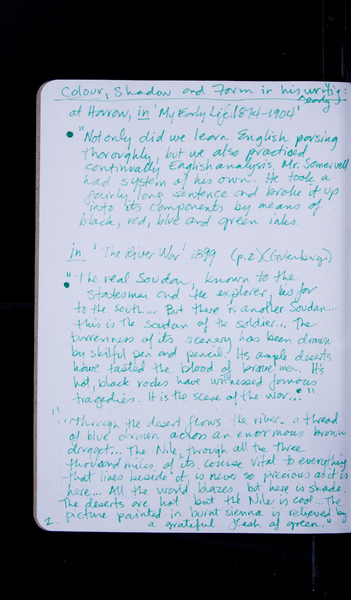 Colour, Shadow and Form in his writing:
early
at Harrow, in 'My Early Life: 1874-1904'
"Not only did we learn English parsing
thoroughly, but we also practised
continually English analysis. Mr. Somervell
had system of his own. He took a
fairly long sentence and broke it up
into its components by means of
black, red, blue and green inks.
in 'The River War' 1899 (p.2) (Gutenburg)
"The real Soudan, known to the
statesman and the explorer, lies far
to the south... But there is another Soudan...
this is the Soudan of the soldier... The
barrenness of its scenery has been drawn
by skilful pen and pencil. Its ample deserts
have tasted the blood of brave men. Its
hot, black rocks have witnessed famous
tragedies. It is the scene of the war..."
"through the desert flows the river - a thread
of blue drawn across an enormous brown
drugget... The Nile, through all the three
thousand miles of its course vital to everything
that lives beside it, is never so precious as it is
here... All the world blazes, but here is shade.
The deserts are hot but the Nile is cool... The
picture painted in burnt sienna is relieved by
a grateful flash of green."
2.